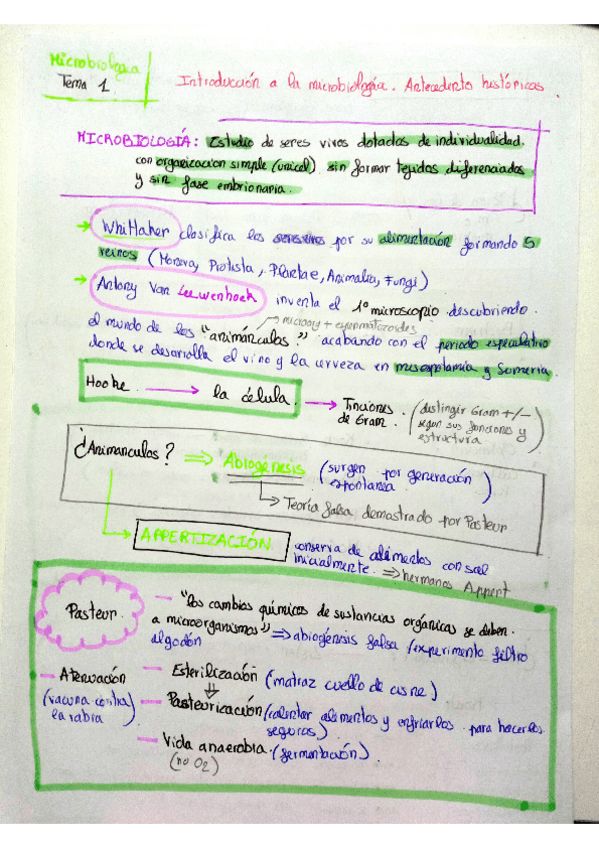 Microbiología
Tema 1
Introducción a la microbiología. Antecedentes históricos.
MICROBIOLOGÍA: Estudio de seres vivos dotados de individualidad
con organización simple (unicel) sin formar tejidos diferenciados
y sin fase embrionaria.
→ Whittaker clasifica los seres vivos por su alimentación formando 5
reinos (Monera, Protista, Plantae, Animalia, Fungi)
→ Antony Van Leewenhoek inventa el 1º microscopio descubriendo
microorg + espermatozoides
el mundo de los "animánculos" acabando con el periodo especulativo
donde se desarrolla el vino y la cerveza en mesopotamia y Sumeria.
Hooke → la célula. → Tinciones de Gram. (distingir Gram +/- segun sus funciones y estructura)
¿Animanculos? ⇒ Abiogenesis (surgen por generación espontanea)
→ Teoría falsa demastrado por Pasteur
→ APPERTIZACIÓN conserva de alimentos con sal
inicialmente. ⇒ hermanos Appert
Pasteur. — "Los cambios químicos de sustancias orgánicas se deben
a microorganismos" ⇒ abiogénisis falsa /experimento filtro
algodón
— Atenuación
(vacuna contra
la rabia)
— Esterilización (matraz cuello de cisne)
⇓
— Pasteurización (calentar alimentos y enfriarlos para hacerlos
seguros)
— Vida anaerobia. (fermentación).
(no O2)